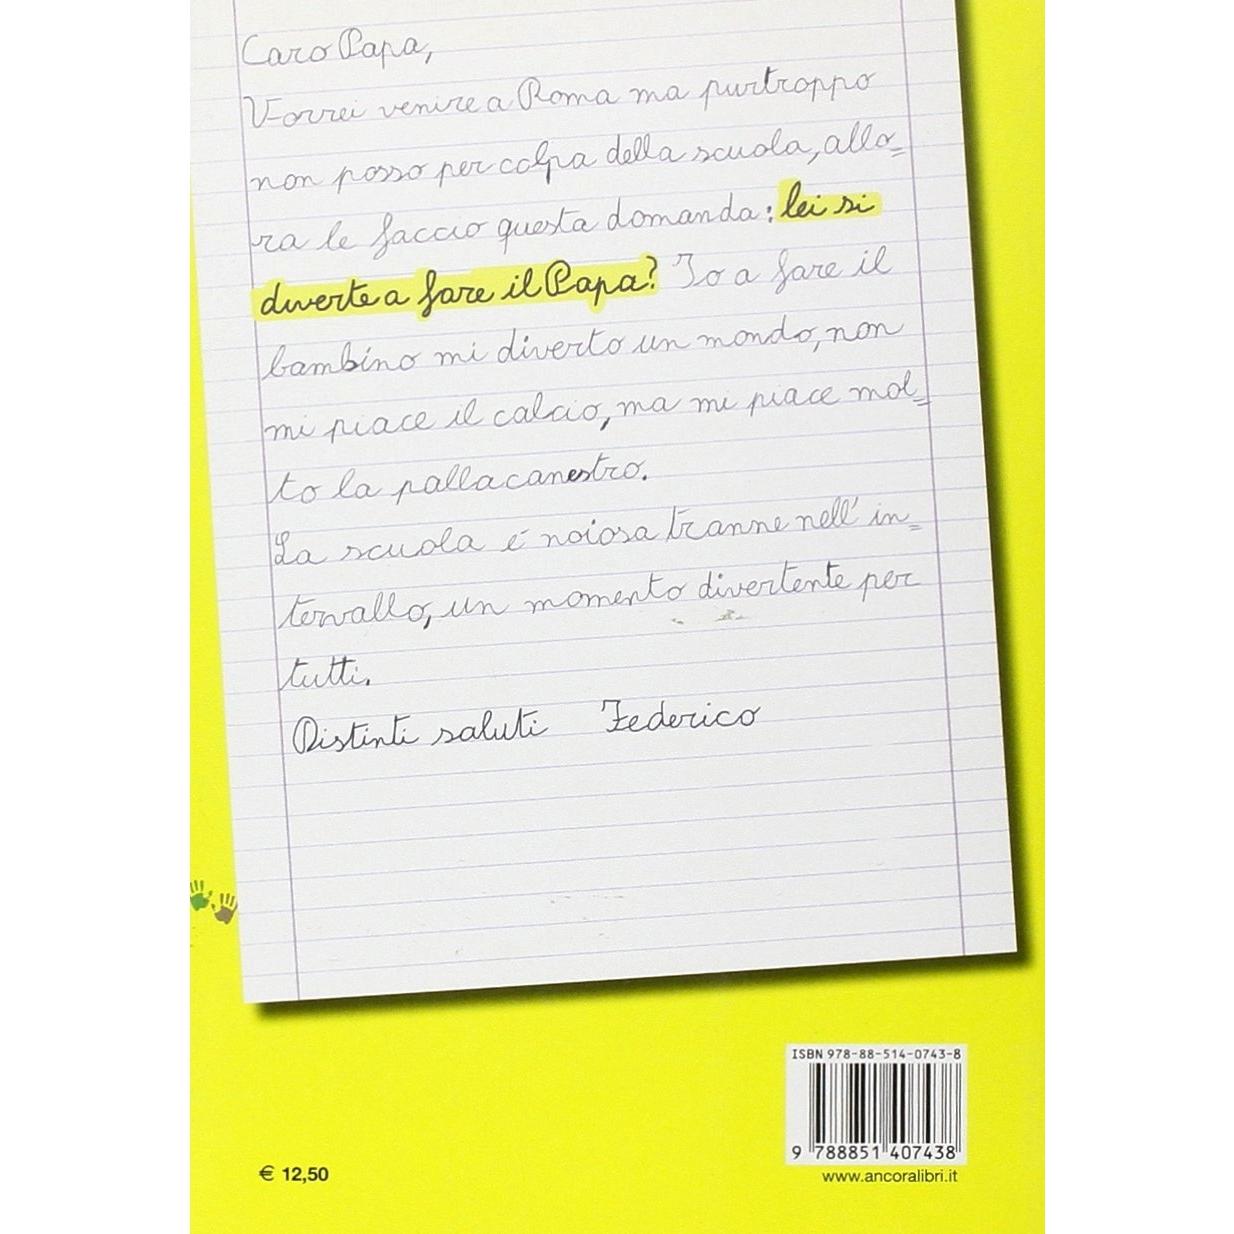 Caro Papa,
Vorrei venire a Roma ma purtroppo
non posso per colpa della scuola, allo=
ra le faccio questa domanda: lei si
diverte a fare il Papa? Io a fare il
bambino mi diverto un mondo, non
mi piace il calcio, ma mi piace mol=
to la pallacanestro.
La scuola é noiosa tranne nell' in=
tervallo, un momento divertente per
tutti.
Distinti saluti Federico
ISBN 978-88-514-0743-8
9 788851 407438
€ 12,50
www.ancoralibri.it